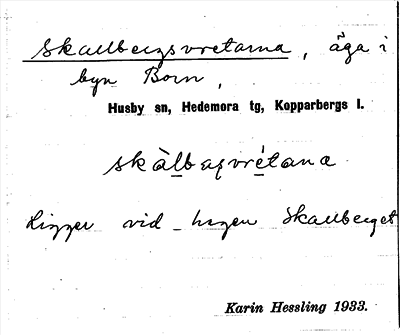 Skallbergsvretarna, äga i
byn Born,
Husby sn, Hedemora tg, Kopparbergs l.
skàlbaqvrétana
Ligger vid högen Skallberget
Karin Hessling 1933.